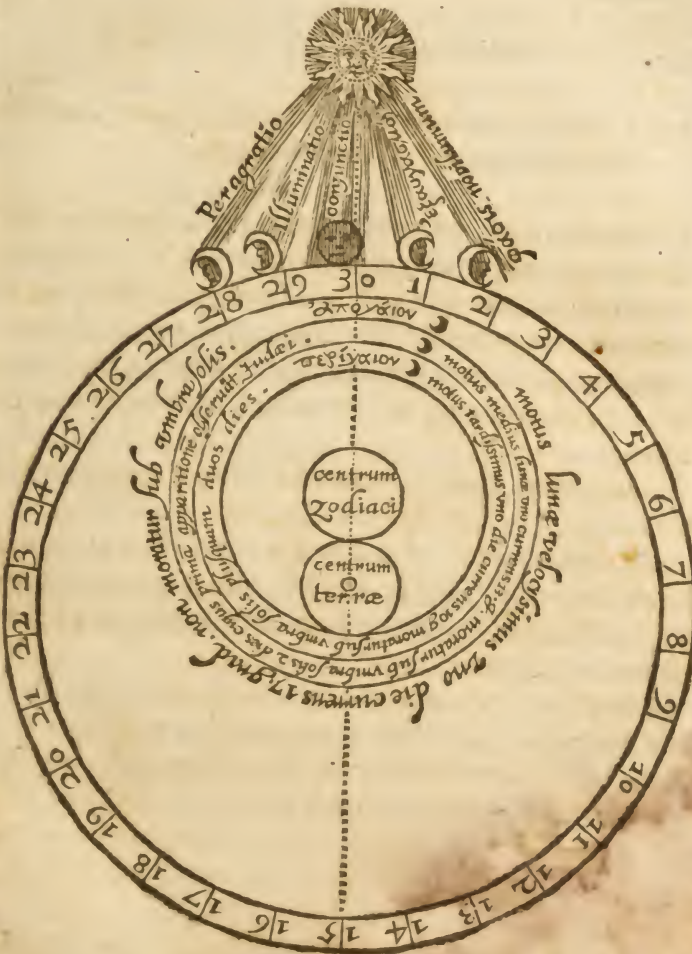 Peragratio
Illuminatio
conjunctio
0 1 2 3 4 5 6 7 8 9 10 11 12 13 14 15 16 17 18 19 20 21 22 23 24 25 26 27 28 29 30
ἀπογάιον
motus lunæ velocissimus vno die currens 17. grad. non moratur sub vmbra solis.
motus medius lunæ vno currens 13. g. moratur sub vmbra solis 2. dies cuius primæ apparitione obseruāt Iudæi.
περίγαιον
motus tardissimus vno die currens 10 g moratur sub vmbra solis plusquam duos dies.
centrum
zodiaci
centrum
terræ